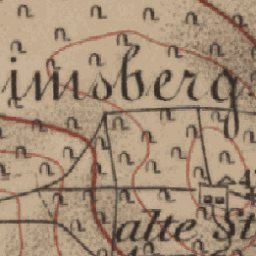 imsberg
alte St